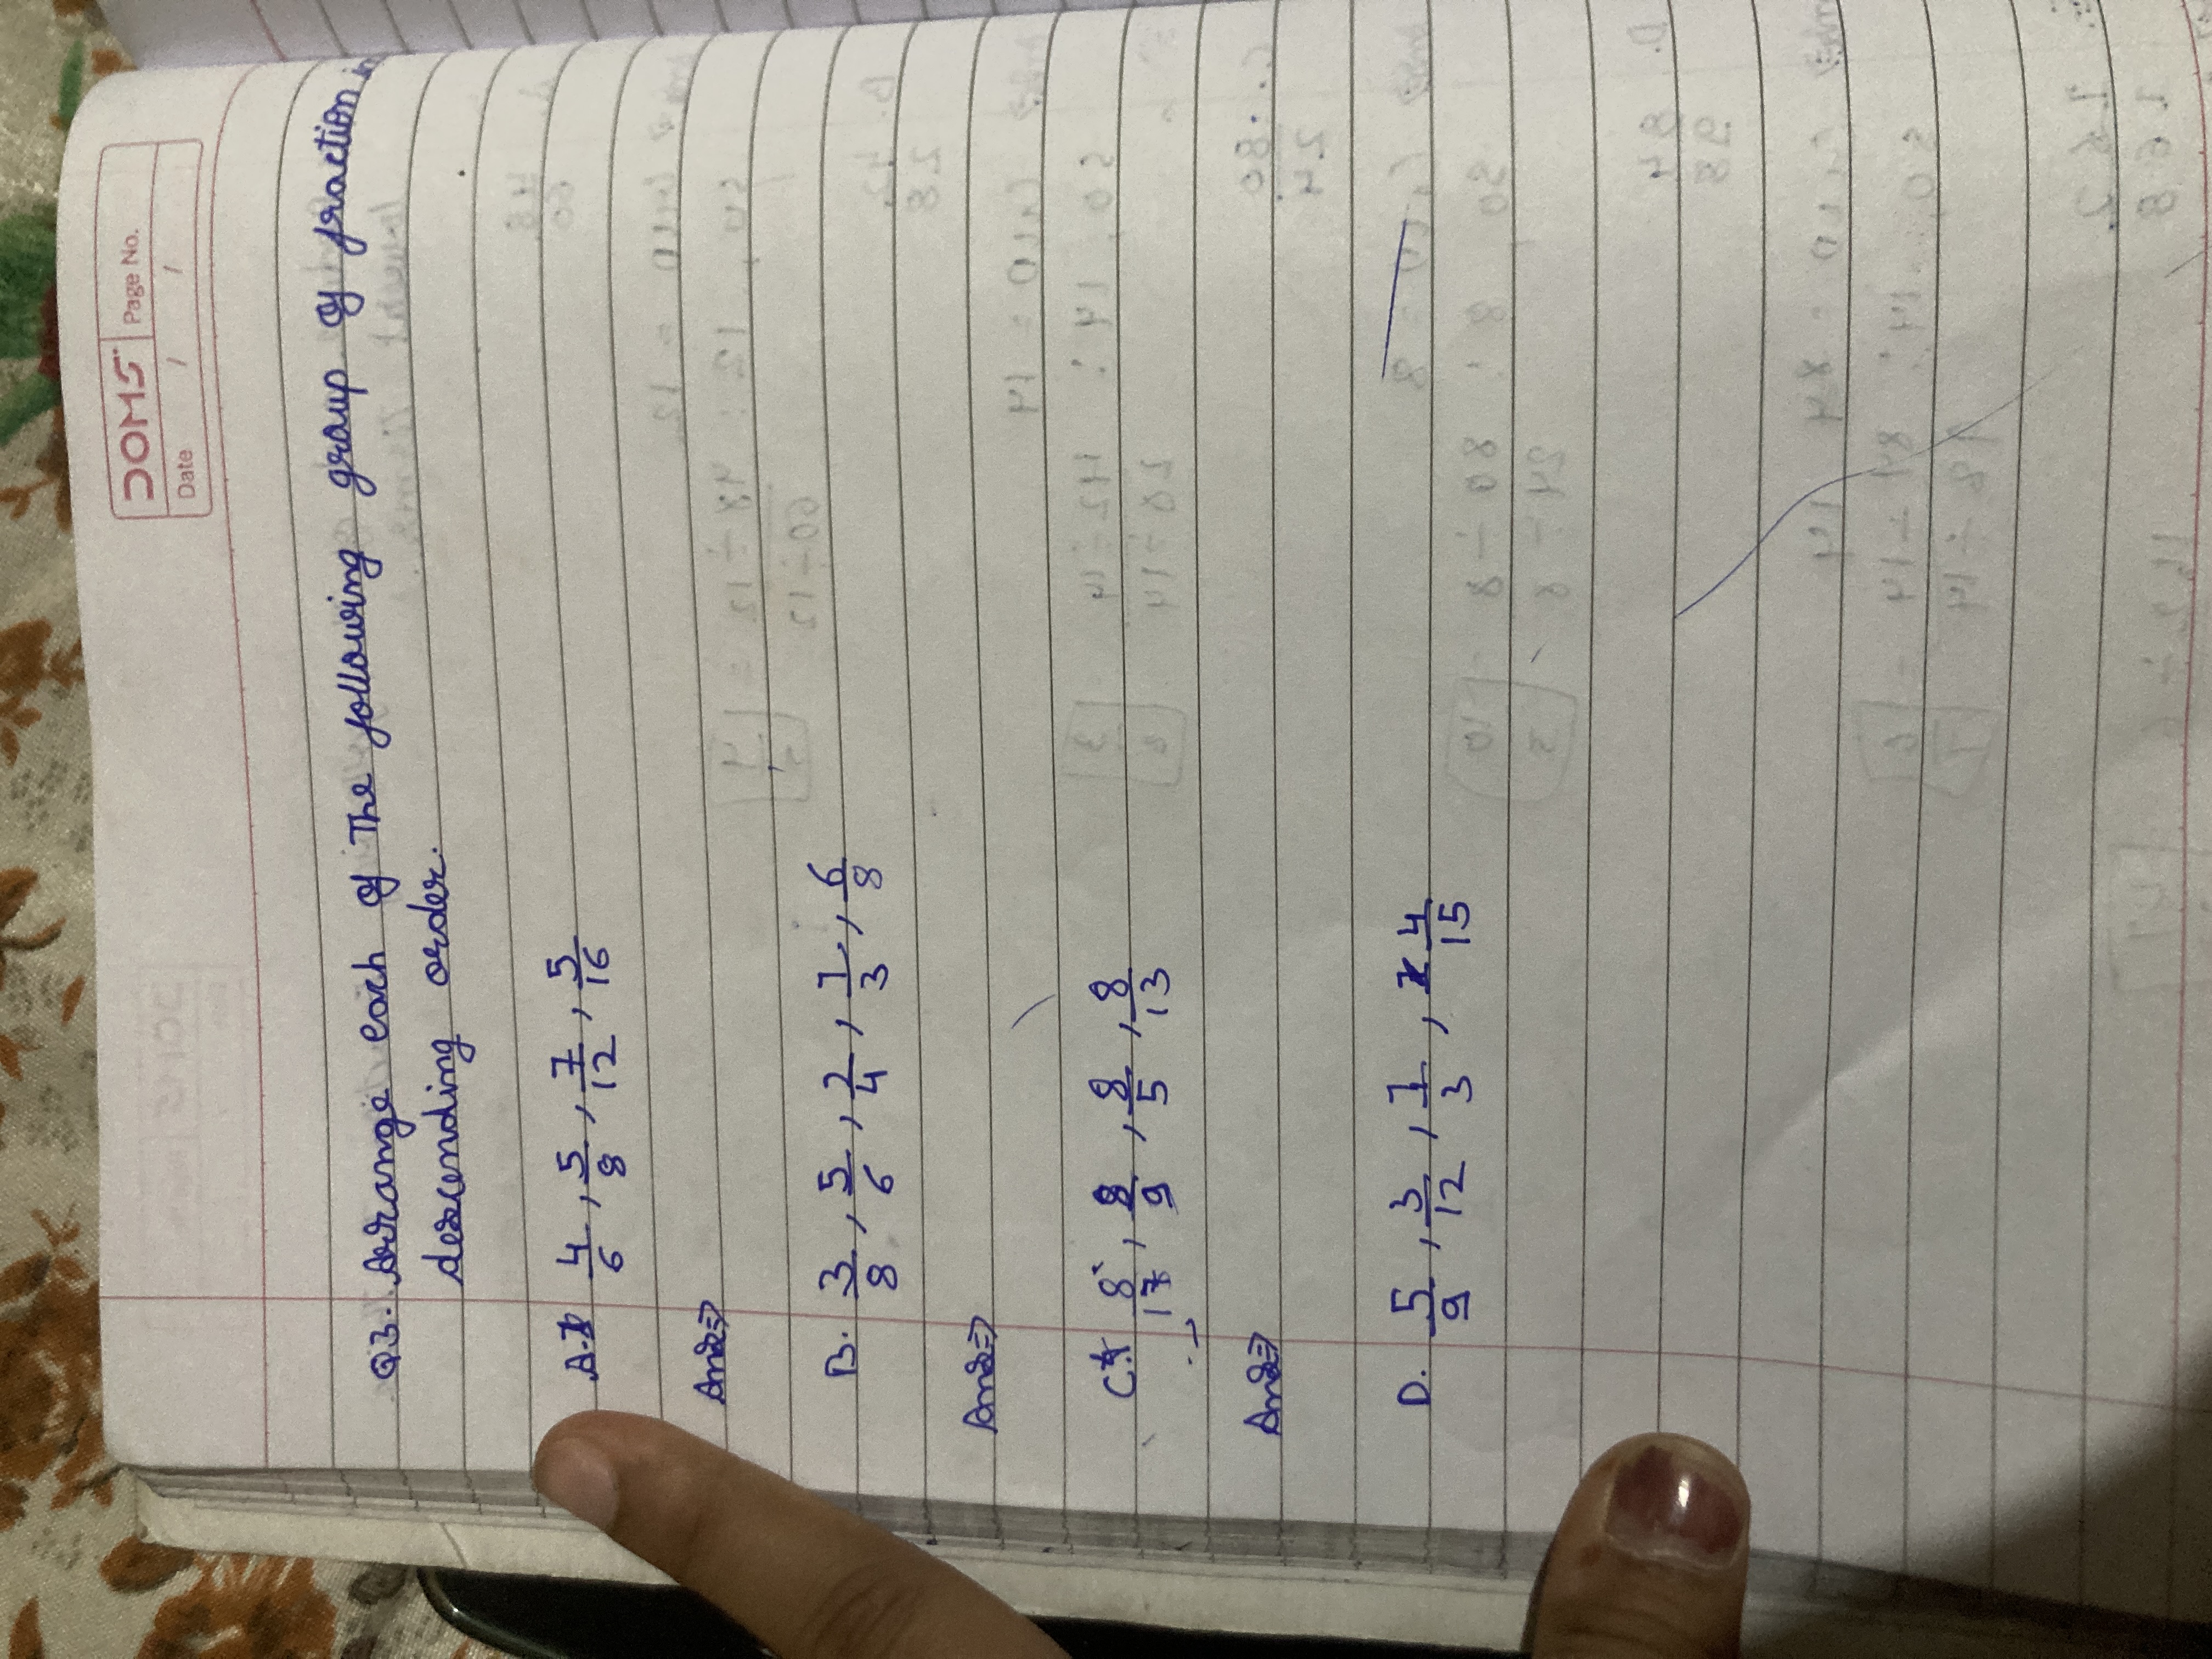 DOMS Page No.
Date / /
Q3. Arrange each of The following group of fraction in
descending order.
A. 4/6, 5/8, 7/12, 5/16
Ans⇒
B. 3/8, 5/6, 2/4, 1/3, 6/8
Ans⇒
C. 8/17, 8/9, 8/5, 8/13
Ans⇒
D. 5/9, 3/12, 1/3, 4/15